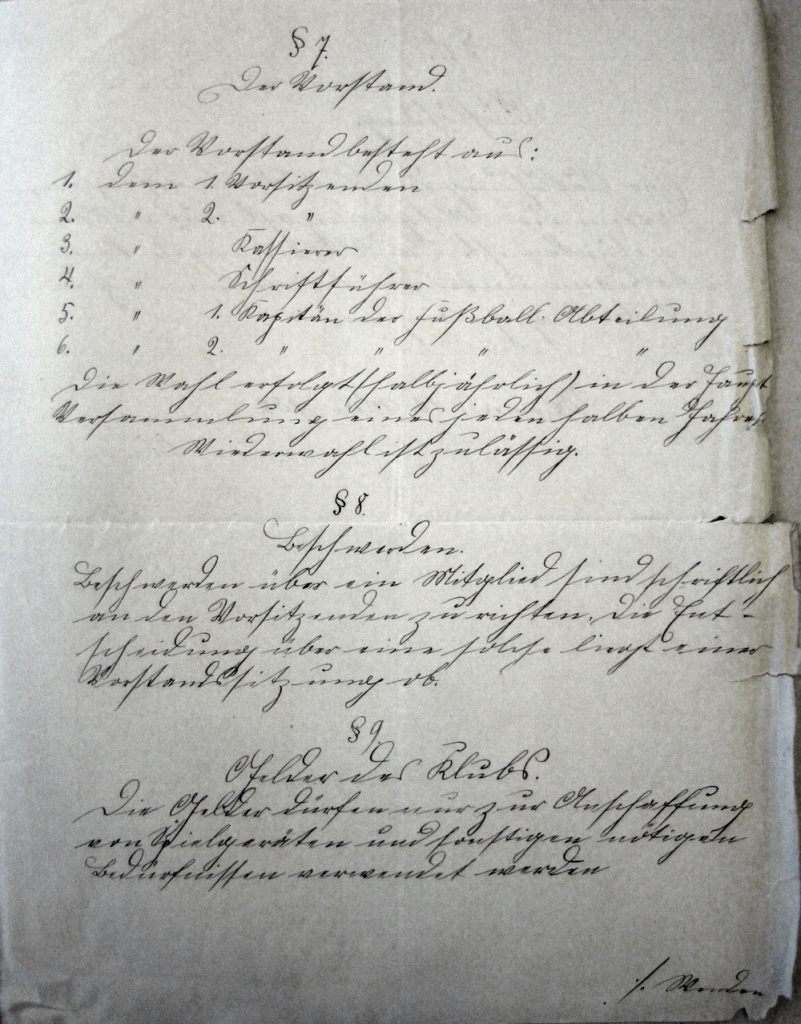 § 7.
Der Vorstand.
Der Vorstand besteht aus:
1. dem 1. Vorsitzenden
2. " 2. "
3. " Kassierer
4. " Schriftführer
5. " 1. Kapitän der Fußball-Abteilung
6. " 2. " " " "
Die Wahl erfolgt (halbjährlich) in der Haupt
Versammlung eines jeden halben Jahres.
Wiederwahl ist zulässig.
§ 8.
Beschwerden.
Beschwerden über ein Mitglied sind schriftlich
an den Vorsitzenden zu richten. Die Ent-
scheidung über eine solche liegt einer
Vorstandssitzung ob.
§ 9
Gelder des Klubs.
Die Gelder dürfen nur zur Anschaffung
von Spielgeräten und sonstigen nötigen
Bedürfnissen verwendet werden
./. Wenden